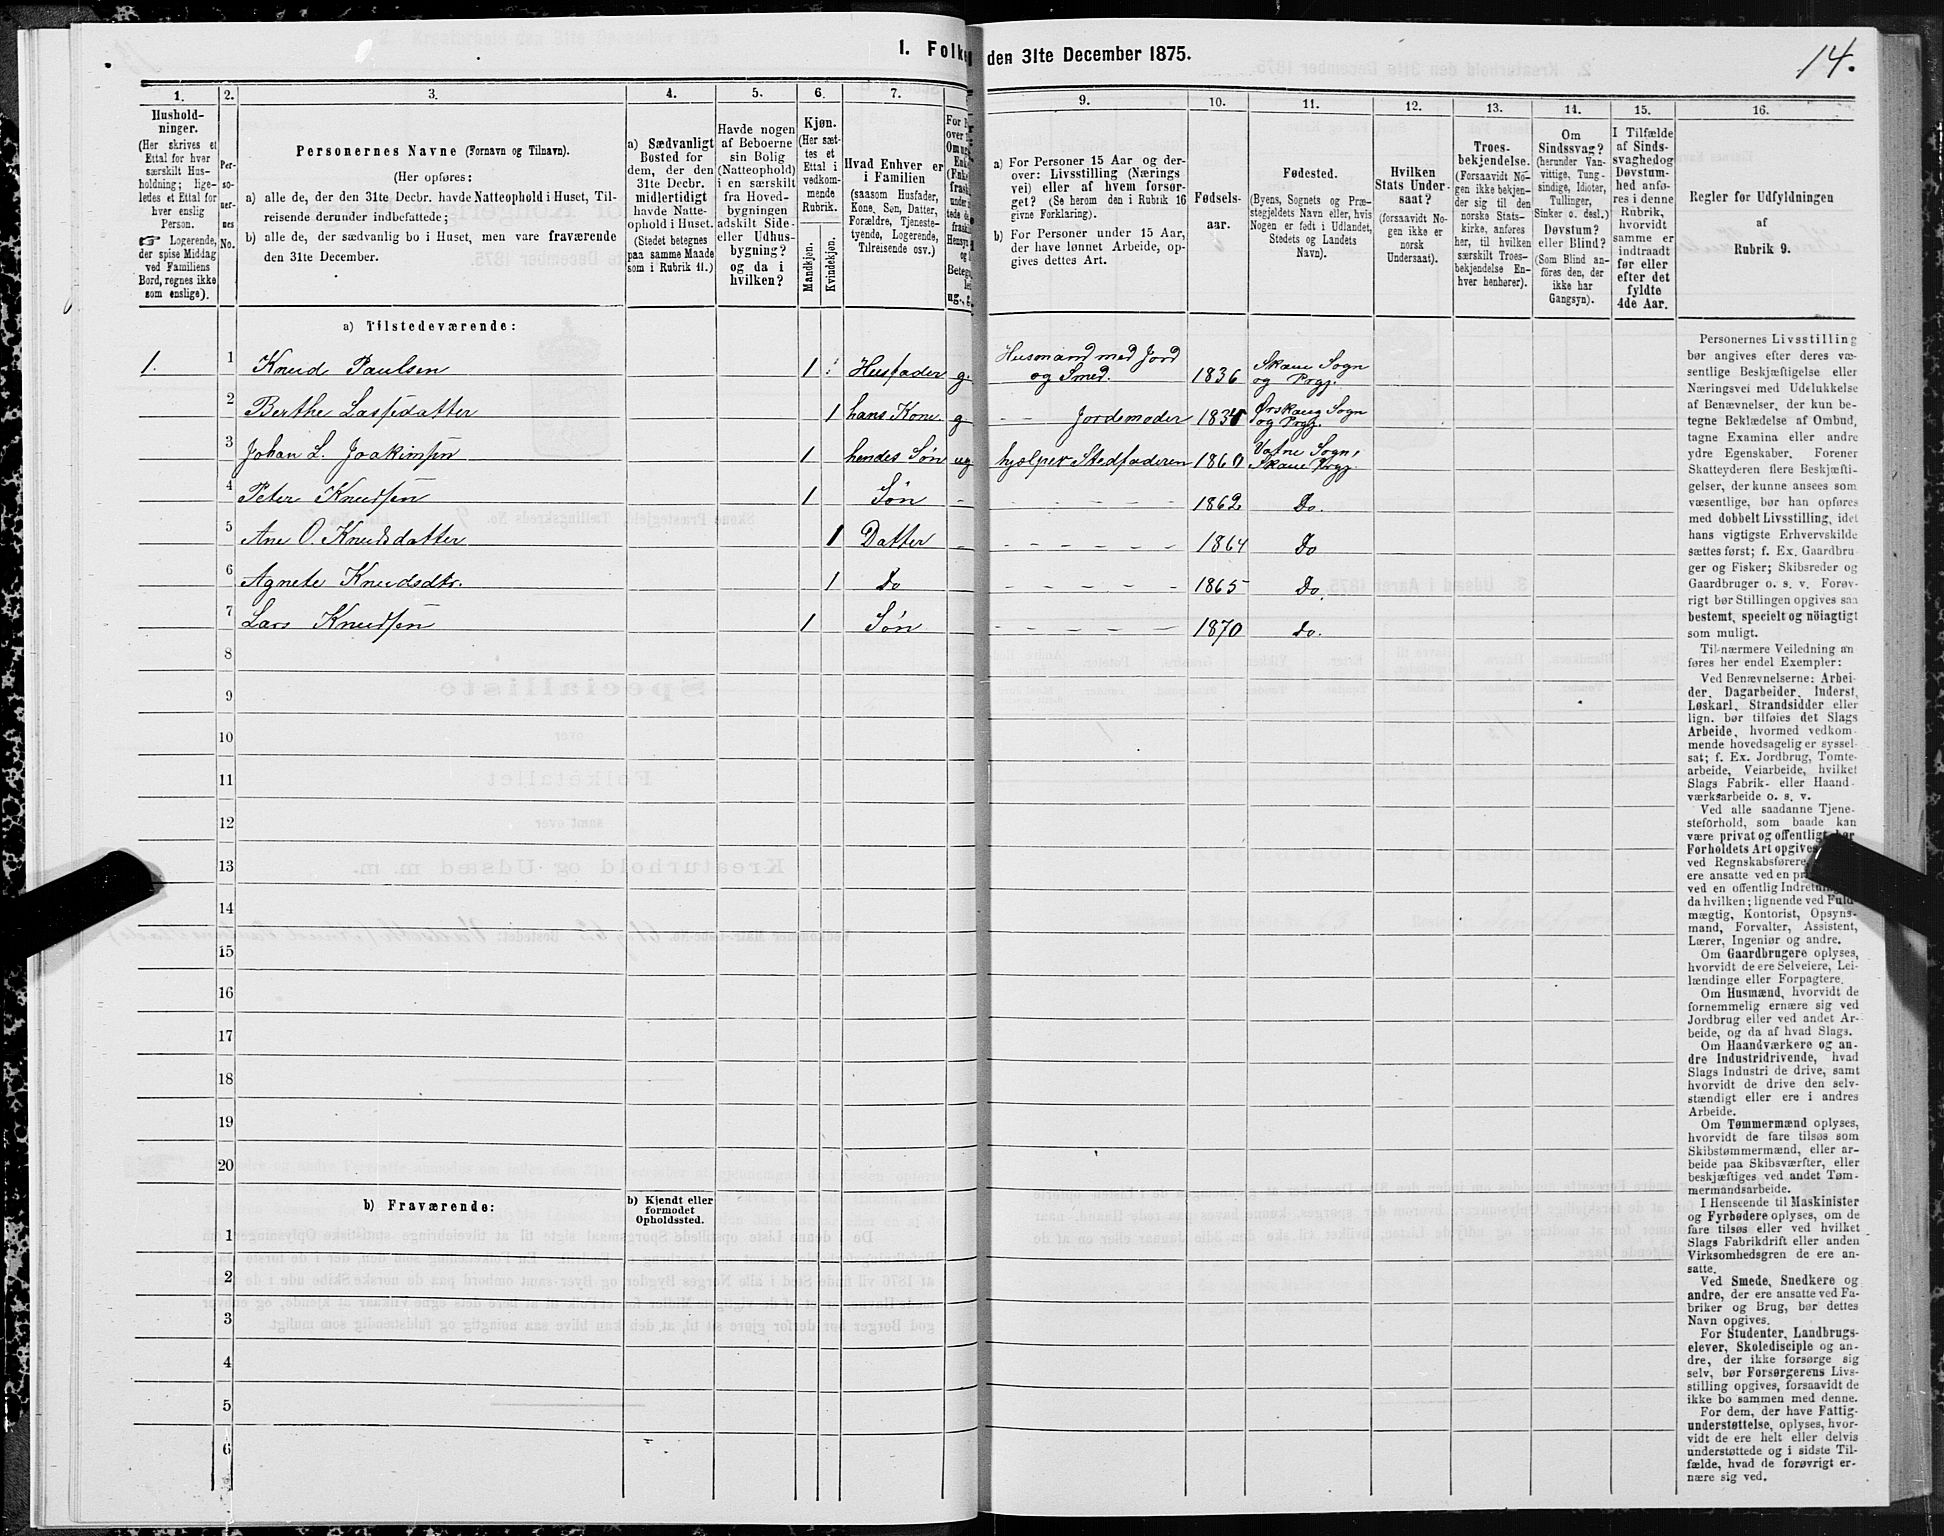 1. Folke
den 31te December 1875.
14.
1.
2.
3.
4.
5.
6.
7.
9.
10.
11.
12.
13.
14.
15.
16.
Hushold-
ninger.
(Her skrives et
Ettal for hver
særskilt Hus-
holdning; lige-
ledes et Ettal for
hver enslig
Person.
☞ Logerende,
der spise Middag
ved Familiens
Bord, regnes ikke
som enslige).
Per-
so-
ner-
nes
No.
Personernes Navne (Fornavn og Tilnavn).
(Her opføres:
a) alle de, der den 31te Decbr. havde Natteophold i Huset, Til-
reisende derunder indbefattede;
b) alle de, der sædvanlig bo i Huset, men vare fraværende
den 31te December.
a) Sædvanligt
Bosted for
dem, der den
31te Decbr.
midlertidigt
havde Natte-
ophold i Huset.
(Stedet betegnes
paa samme Maade
som i Rubrik 11.)
Havde nogen
af Beboerne
sin Bolig
(Natteophold)
i en særskilt
fra Hoved-
bygningen
adskilt Side-
eller Udhus-
bygning?
og da i
hvilken?
Kjøn.
(Her sæt-
tes et
Ettal i
vedkom-
mende
Rubrik.
Mandkjøn.
Kvindekjøn.
Hvad Enhver er
i Familien
(saasom Husfader,
Kone, Søn, Datter,
Forældre, Tjeneste-
tyende, Logerende,
Tilreisende osv.)
a) For Personer 15 Aar og der-
over: Livsstilling (Nærings
vei) eller af hvem forsør-
get? (Se herom den i Rubrik 16
givne Forklaring).
b) For Personer under 15 Aar,
der have lønnet Arbeide, op-
gives dettes Art.
Fødsels-
aar.
Fødested.
(Byens, Sognets og Præ-
stegjeldets Navn eller, hvis
Nogen er født i Udlandet,
Stedets og Landets
Navn).
Hvilken
Stats Under-
saat?
(forsaavidt No-
gen ikke er
norsk
Undersaat).
Troes-
bekjendelse.
(Forsaavidt No-
gen ikke bekjen-
der sig til den
norske Stats-
kirke, anføres
her, til hvilken
særskilt Troes-
bekjendelse En-
hver henhører).
Om
Sindssvag?
(herunder Van-
vittige, Tung-
sindige, Idioter,
Tullinger,
Sinker o. desl.)
Døvstum?
eller Blind?
(Som Blind an-
føres den, der
ikke har
Gangsyn).
I Tilfælde
af Sinds-
svaghed og
Døvstum-
hed anfø-
res i denne
Rubrik,
hvorvidt
samme er
indtraadt
før eller
efter det
fyldte
4de Aar.
Regler for Udfyldningen
af
Rubrik 9.
a) Tilstedeværende:
1. 1 Knud Paulsen 1 Husfader g. Husmand med Jord og Smed. 1836 Skaue Sogn og Prgj.
2 Berthe Lassedatter 1 hans Kone g - - Jordemoder Ørskaug Sogn og Prgj.
3 Johan L. Joakimsen 1 hendes Søn ug hjælper Stedfaderen 1860 Vatne Sogn, Skaue Prgj.
4 Peter Knudsen 1 Søn - - - - - - 1862 Do.
5 Ane O. Knudsdatter 1 Datter - - - - - - 1864 Do
6 Agnete Knudsdtr. 1 Do - - - - - 1865 Do.
7 Lars Knudsen 1 Søn - - - - - 1870 Do.
8
9
10
11
12
13
14
15
16
17
18
19
20
b) Fraværende:
b) Kjendt eller
formodet
Opholdssted.
1
2
3
4
5
6
Personernes Livsstilling
bør angives efter deres væ-
sentlige Beskjæftigelse eller
Næringsvei med Udelukkelse
af Benævnelser, der kun be-
tegne Beklædelse af Ombud,
tagne Examina eller andre
ydre Egenskaber. Forener
Skatteyderen flere Beskjæfti-
gelser, der kunne ansees som
væsentlige, bør han opføres
med dobbelt Livsstilling, idet
hans vigtigste Erhvervskilde
sættes først; f. Ex. Gaardbru-
ger og Fisker; Skibsreder og
Gaardbruger o. s. v. Forøv-
rigt bør Stillingen opgives saa
bestemt, specielt og nöiagtigt
som muligt.
Til nærmere Veiledning an
føres her endel Exempler:
Ved Benævnelserne: Arbei-
der, Dagarbeider, Inderst,
Løskarl, Strandsidder eller
lign. bør tilføies det Slags
Arbeide, hvormed vedkom-
mende hovedsagelig er syssel-
sat; f. Ex. Jordbrug, Tomte-
arbeide, Veiarbeide, hvilket
Slags Fabrik- eller Haand-
værksarbeide o. s. v.
Ved alle saadanne Tjene-
steforhold, som baade kan
være privat og offentligt, bør
Forholdets Art opgives
ved Regnskabsførere
ere ansatte ved en
ved en offentlig
da hvilken; lignende ved Fuld-
mægtig, Kontorist, Opsyns-
mand, Forvalter, Assistent,
Lærer, Ingeniør og andre.
Om Gaardbrugere oplyses,
hvorvidt de ere Selveiere, Lei-
lændinge eller Forpagtere.
Om Husmænd, hvorvidt de
fornemmelig ernære sig ved
Jordbrug eller ved andet Ar-
beide, og da af hvad Slags.
Om Haandværkere og an-
dre Industridrivende, hvad
Slags Industri de drive, samt
hvorvidt de drive den selv-
stændigt eller ere i andres
Arbeide.
Om Tømmermænd oplyses,
hvorvidt de fare tilsøs som
Skibstømmermænd, eller ar-
beide paa Skibsværfter, eller
beskjæftiges ved andet Tøm-
mermandsarbeide.
I Henseende til Maskinister
og Fyrbødere oplyses, om de
fare tilsøs eller ved hvilket
Slags Fabrikdrift eller anden
Virksomhedsgren de ere an-
satte.
Ved Smede, Snedkere og
andre, der ere ansatte ved Fa-
briker og Brug, bør dettes
Navn opgives.
For Studenter, Landbrugs-
elever, Skoledisciple og an-
dre, der ikke forsørge sig
selv, bør Forsørgerens Livs-
stilling opgives, forsaavidt de
ikke bo sammen med denne.
For dem, der have Fattig-
understøttelse, oplyses, hvor-
vidt de ere helt eller delvis
understøttede og i sidste Til-
fælde, hvad de forøvrigt er-
nære sig ved.